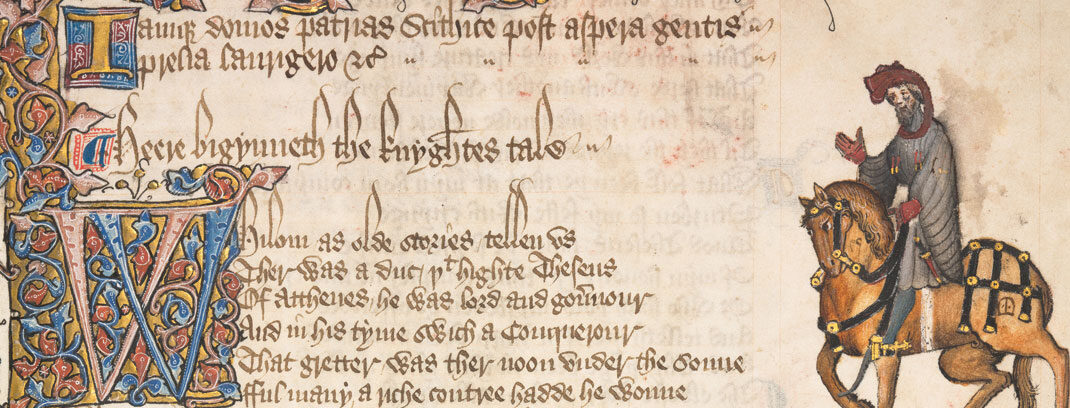 Iamq domos patrias Scithice post aspera gentis
prelia laurigero &c
Heere bigynneth the knyghtes tale
Whilom as olde stories tellen vs
Ther was a duc, þt highte Theseus
Of Atthenes, he was lord and gouernour
And in his tyme swich a Conquerour
That gretter was ther noon vnder the sonne
fful many a riche contree hadde he wonne